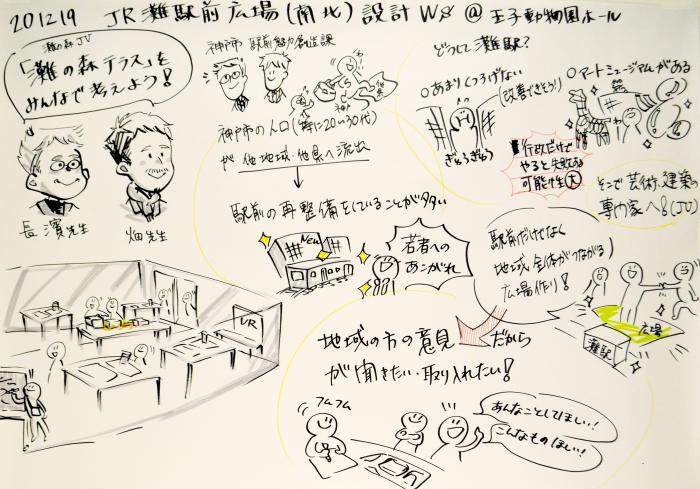 201219 JR灘駅前広場(南北)設計WS @ 王子動物園ホール
灘の森JV
「灘の森テラス」を
みんなで考えよう!
長濱先生
畑先生
神戸市 駅前魅力創造課
神戸市の人口(特に20〜30代)
が他地域・他県へ流出
駅前の再整備をしていることが多い
New
若者への
あこがれ
どうして灘駅?
○あまりくつろげない
(改善できそう!)
ぎゅうぎゅう
○アートミュージアムがある
行政だけで
やると失敗する
可能性大
そこで芸術、建築の
専門家へ!(JV)
駅前だけでなく
地域全体がつながる
広場作り!
広場
灘駅
VR
だから
地域の方の意見
が聞きたい・取り入れたい!
フムフム
あんなことしてほしい!
こんなものほしい!